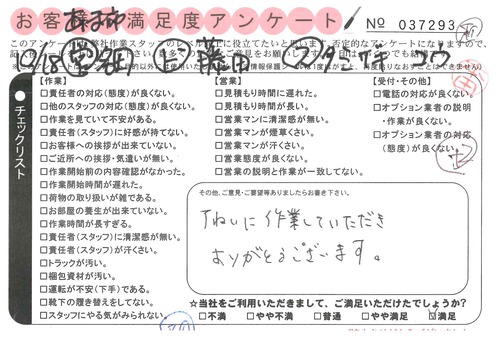 お客様満足度アンケート
№ 037293
チェックリスト
【作業】
□責任者の対応(態度)が良くない。
□他のスタッフの対応(態度)が良くない。
□作業を見ていて不安がある。
□責任者(スタッフ)に好感が持てない。
□お客様への挨拶が出来ていない。
□ご近所への挨拶・気遣いが無い。
□作業開始前の内容確認がなかった。
□作業開始時間が遅れた。
□荷物の取り扱いが雑である。
□お部屋の養生が出来ていない。
□作業時間が長すぎる。
□責任者(スタッフ)に清潔感が無い。
□責任者(スタッフ)が汗くさい。
□トラックが汚い。
□梱包資材が汚い。
□運転が不安(下手)である。
□靴下の履き替えをしてない。
□スタッフにやる気がみられない。
【営業】
□見積もり時間に遅れた。
□見積もり時間が長い。
□営業マンに清潔感が無い。
□営業マンが煙草くさい。
□営業マンが汗くさい。
□営業態度が良くない。
□営業の説明と作業が一致してない。
【受付・その他】
□電話の対応が良くない。
□オプション業者の説明
・作業が良くない。
□オプション業者の対応
(態度)が良くない。
その他、ご意見・ご要望等ありましたらお書き下さい。
ていねいに作業していただき
ありがとうございます。
☆当社をご利用いただきまして、ご満足いただけたでしょうか?
□不満 □やや不満 □普通 □やや満足 □満足